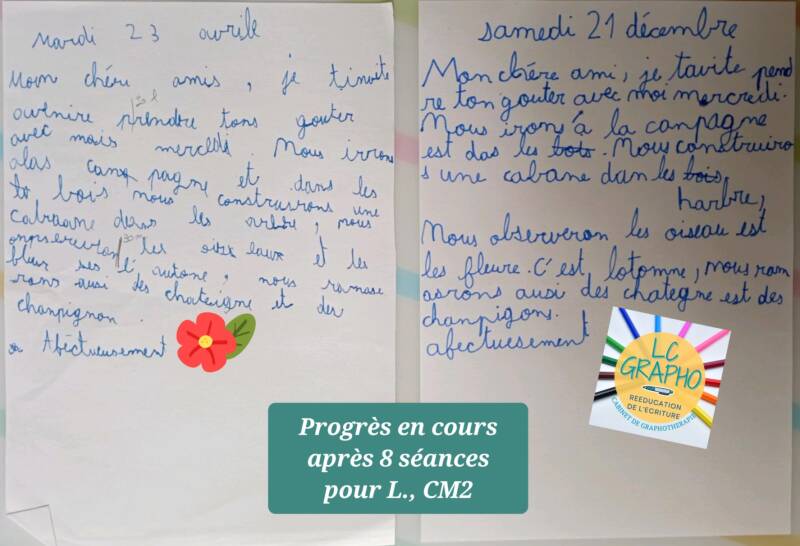 Mardi 23 avrile
Mom chére amis, je t'invite
avenire prendre tons gouter
avec mais mercredi Nous irrons
alas can pagne et dans les
bois nous construirons une
cabaane dans les arbre, nous
les oise eaux et les
fleur ses l'autone, nous ramase
rons ausi des chateigne et des
chanpignon.
Abectueusement
samedi 21 décembre
Mon chére ami, je t'avite pend
re ton gouter avec moi mercredi.
Nous irons à la canpagne
est das les bots. Nous construiro
s une cabane dan les bois
harbre,
Nous observeron les oiseau est
les fleure. C'est lotomne, nous ram
asrons ausi des chategne est des
chanpigons.
abectuesement
LC
GRAPHO
REEDUCATION
DE L'ECRITURE
CABINET DE GRAPHOTHERAPIE
Progrès en cours
après 8 séances
pour L., CM2